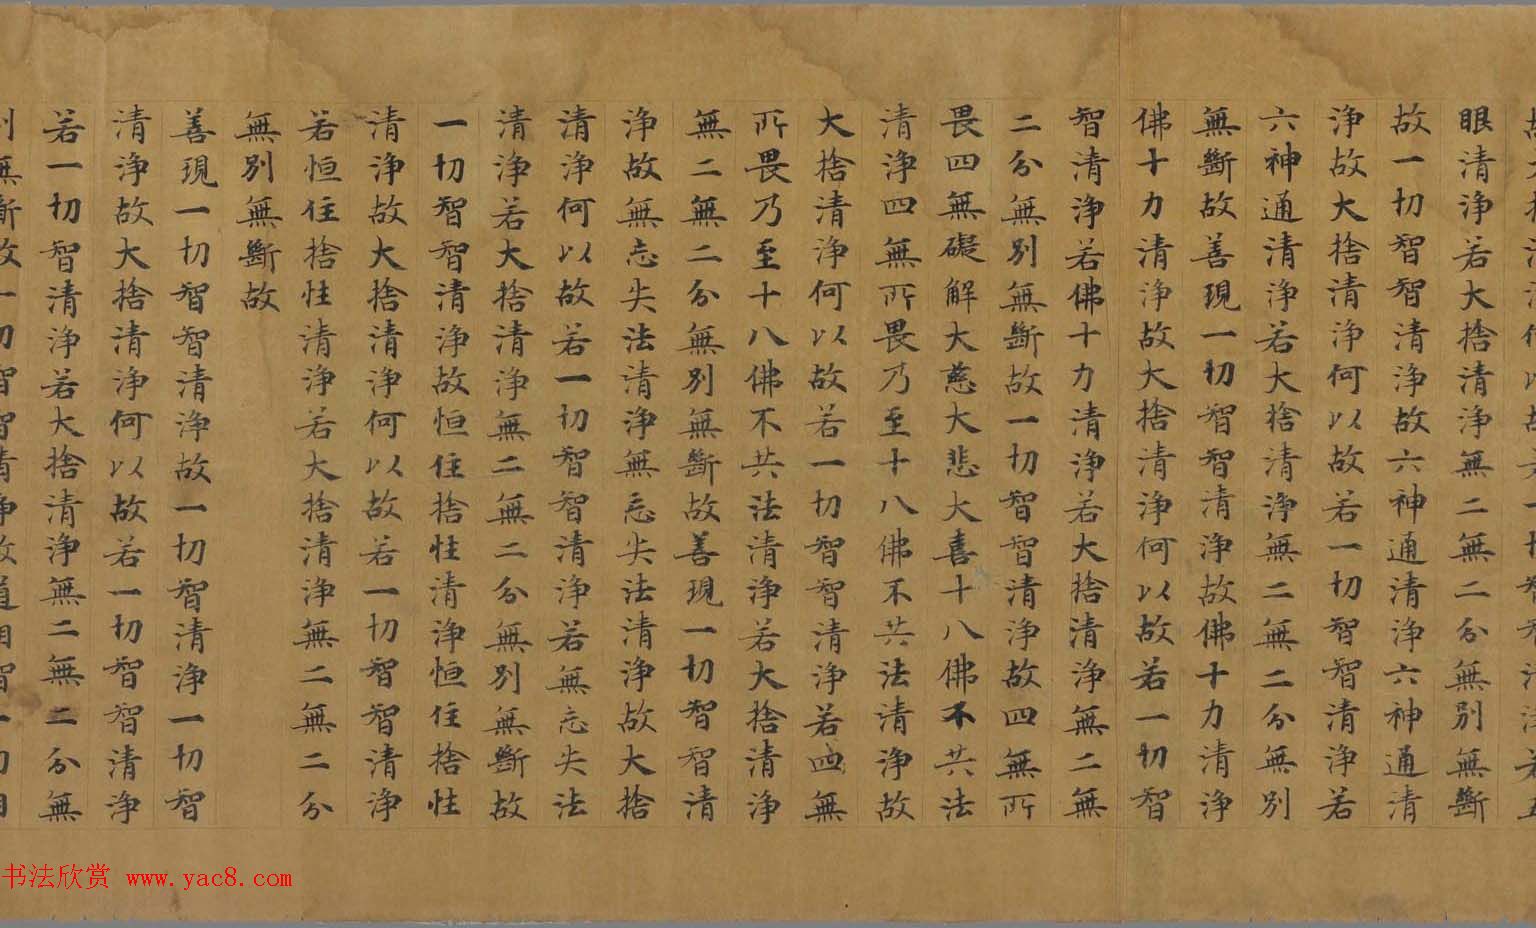 眼清淨若大捨清淨無二無二分無別無斷
故一切智智清淨故六神通清淨六神通清
淨故大捨清淨何以故若一切智智清淨若
六神通清淨若大捨清淨無二無二分無別
無斷故善現一切智智清淨故佛十力清淨
佛十力清淨故大捨清淨何以故若一切智
智清淨若佛十力清淨若大捨清淨無二無
二分無別無斷故一切智智清淨故四無所
畏四無礙解大慈大悲大喜十八佛不共法
清淨四無所畏乃至十八佛不共法清淨故
大捨清淨何以故若一切智智清淨若四無
所畏乃至十八佛不共法清淨若大捨清淨
無二無二分無別無斷故善現一切智智清
淨故無忘失法清淨無忘失法清淨故大捨
清淨何以故若一切智智清淨若無忘失法
清淨若大捨清淨無二無二分無別無斷故
一切智智清淨故恒住捨性清淨恒住捨性
清淨故大捨清淨何以故若一切智智清淨
若恒住捨性清淨若大捨清淨無二無二分
無別無斷故
善現一切智智清淨故一切智清淨一切智
清淨故大捨清淨何以故若一切智智清淨
若一切智清淨若大捨清淨無二無二分無
別無斷故一切智智清淨故道相智一切相
书法欣赏 www.yac8.com